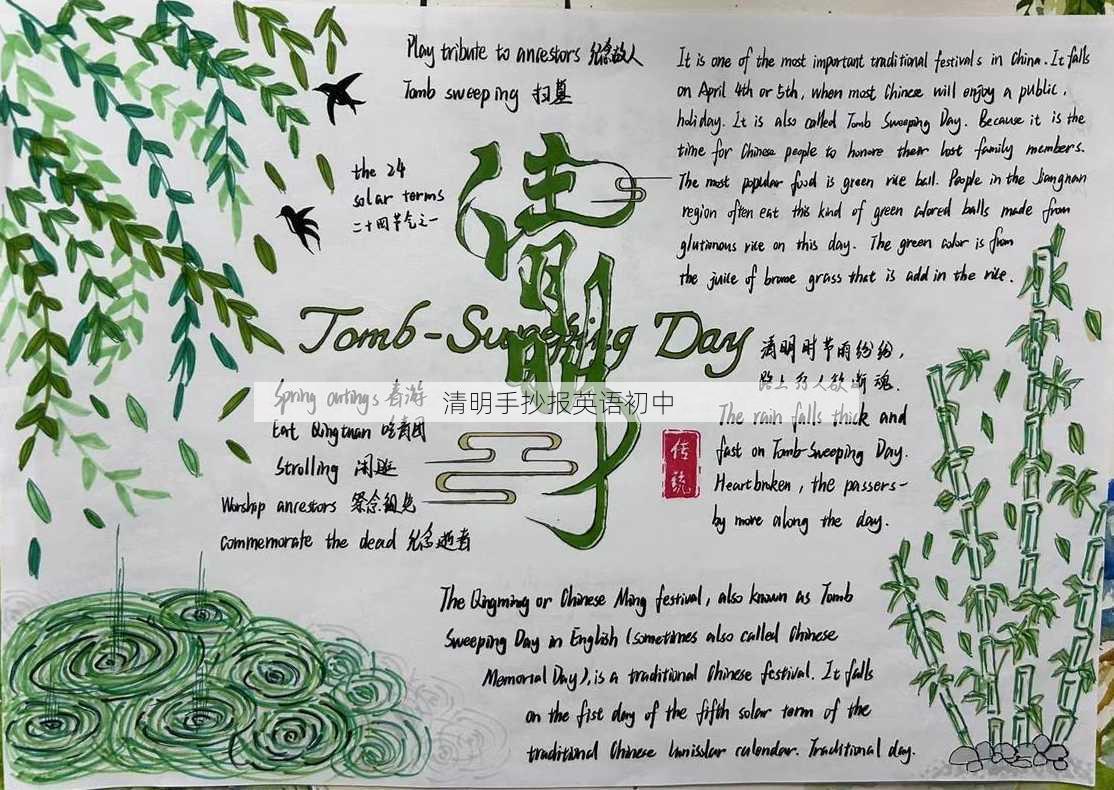 Play tribute to ancestors 纪念故人
Tomb sweeping 扫墓
the 24
solar terms
二十四节气之一
清明
Tomb-Sweeping Day
It is one of the most important traditional festivals in China. It falls
on April 4th or 5th, when most Chinese will enjoy a public.
holiday. It is also called Tomb Sweeping Day. Because it is the
time for Chinese people to honore their lost family members.
The most popular food is green rice ball. People in the Jiangnan
region often eat this kind of green colored balls made from
glutionous rice on this day. The green color is from
the juice of brome grass that is add in the rice.
Spring outings 春游
Eat Qingtuan 吃青团
Strolling 闲逛
Worship ancestors 祭念祖先
commemorate the dead 纪念逝者
清明手抄报英语初中
清明时节雨纷纷，
路上行人欲断魂.
The rain falls thick and
fast on Tomb-Sweeping Day.
Heartbroken, the passers-
by move along the day.
传统
The Qingming or Chinese Ming festival, also known as Tomb
Sweeping Day in English (sometimes also called Chinese
Memorial Day), is a traditional Chinese festival. It falls
on the fist day of the fifth solar term of the
traditional Chinese lunisolar calendar. Traditional day.